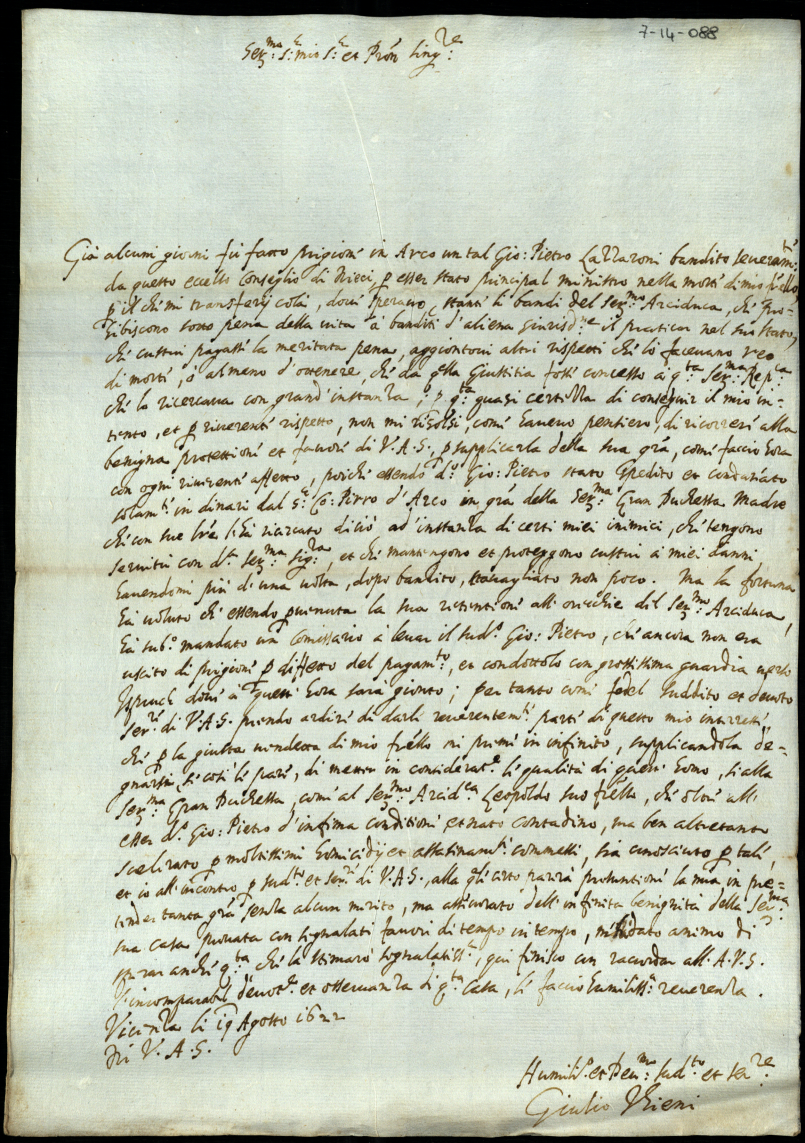 7-14-088
Ser.ma S.r mio S.r et Pron Sing.re
Già alcuni giorni fù fatto prigioni in Arco un tal Gio: Pietro Lazzaroni bandito severam.ti
da questo eccelso Conseglio di Dieci, p esser stato principal ministro nella morti di mio frello
p il chi mi transferij colà, dovi speravo, stanti li bandi del Ser.mo Arciduca, chi pro-
hibiscono sotto pena della vita à banditi d'aliena giurisd.ne il praticar nel suo stato,
chi custui pagassi la meritata pena, aggiontovi altri rispetti chi lo facevano reo
di morti, ò almeno d'ottenere, chi da q.lla Giustitia fossi concesso à q.ta Ser.ma Rep.ca
chi lo ricercava con grand'instanza; p q.ta quasi certezza di conseguir il mio in-
tento, et p riverenti rispetto, non mi risolsi, comi havevo pensiero, di ricorreri alla
benigna protettioni et favori di V.A.S. p supplicarla della sua grã, comi faccio hora
con ogni riverenti affetto, poichi essendo d.o Gio: Pietro stato spedito et condañato
solam.ti in dinari dal S.r Co: Pirro d'Arco in grã della Ser.ma Gran Duchessa Madre
chi con sue lrẽ li hà ricercato di ciò ad'instanza di certi miei inimici, chi tengono
servitù con d.ta Ser.ma Sig.ra, et chi mantengono et proteggono custui à miei danni
havendomi più di una volta, dopo bandito, travagliato non poco. Ma la fortuna
hà voluto chi essendo pvenuta la sua retentioni all'orecchie del Ser.mo Arciduca,
hà sub.o mandato un Comissario à levar il sud.o Gio: Pietro, chi ancora non era
uscito di prigioni p diffetto del pagam.to, et condottolo con grossissima guardia verso
Ispruch dovi à quest' hora sarà gionto; per tanto comi fedel suddito et devoto
Ser.re di V.A.S. prendo ardiri di darli reverentem.ti parti di questo mio interessi,
chi p la giusta vendetta di mio frello mi premi in infinito, supplicandola de-
gnarsi, si così li pari, di metter in considerat.e li qualità di quest' homo, sì alla
Ser.ma Gran Duchessa, com'al Ser.mo Arcid.ca Leopoldo suo frello, chi oltri all'
esser d.o Gio: Pietro d'infima conditioni et nato contadino, ma ben altretanto
scelerato p moltissimi homicidij et assasinam.ti commessi, sia conosciuto p tali,
et io all'incontro p sud.to et ser.re di V.A.S., alla q.le certo parrà prosuntioni la mia in pre-
tender tanta grã senza alcun merito, ma assicurato dell'infinita benignità della Ser.ma
sua casa provata con segnalati favori di tempo in tempo, mi hà dato animo di
sperar anchi q.ta chi la stimarò segnalatiss.a, qui finisco con racordar all'A.V.S.
l'incomparabil devot.e et osservanza di q.ta Casa, li faccio humiliss.a reverenza.
Vicenza li 19 Agosto 1622
Di V.A.S.
Humilis.o et Dev.mo sud.to et ser.re
Giulio Thieni